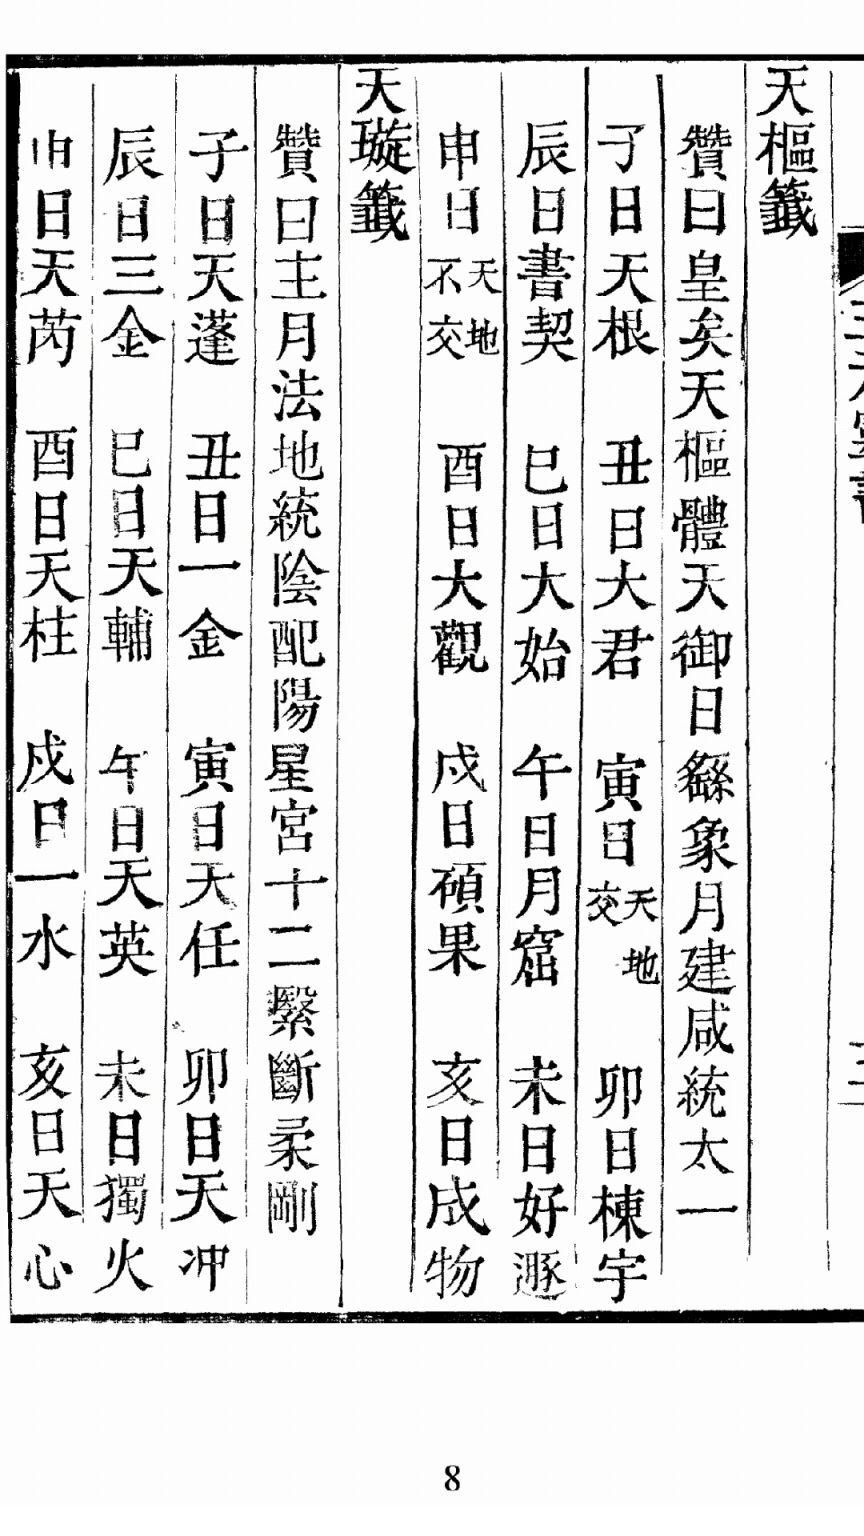 天樞籤
贊曰皇矣天樞體天御日繇象月建咸統太一
子日天根　丑日大君　寅日天地交　卯日棟宇
辰日書契　巳日大始　午日月窟　未日好遯
申日天地不交　酉日大觀　戌日碩果　亥日成物
天璇籤
贊曰主月法地統陰配陽星宮十二繫斷柔剛
子日天蓬　丑日一金　寅日天任　卯日天冲
辰日三金　巳日天輔　午日天英　未日獨火
申日天芮　酉日天柱　戌日一水　亥日天心
8